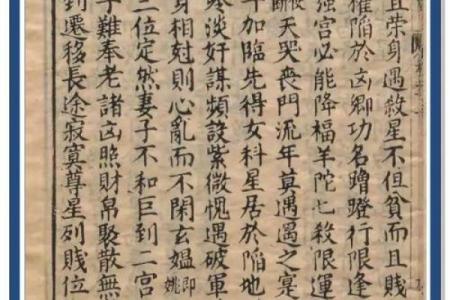 且荣身遇殺星不但貧而且賤
權陷於凶鄉功名蹭蹬行限逢
强宫必能降福羊陀七殺限運
天哭喪門流年莫遇遇之寔
斗加臨先得女科星居於陷地
寒淡奸謀頻設紫微愧遇破軍
身相尅則心亂而不閑玄媼即姚
三位定然妻子不和巨到二宫
子難奉老諸凶照財帛聚散無
到遷移長途寂寞尊星列賤位